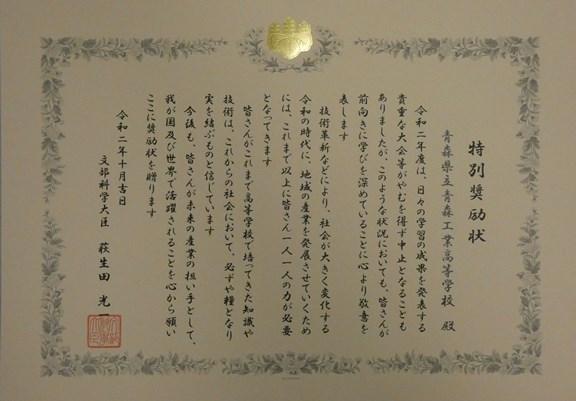 特別奨励状
青森県立青森工業高等学校 殿
令和二年度は、日々の学習の成果を発表する
貴重な大会等がやむを得ず中止となることも
ありましたが、このような状況においても、皆さんが
前向きに学びを深めていることに心より敬意を
表します
技術革新などにより、社会が大きく変化する
令和の時代に、地域の産業を発展させていくため
には、これまで以上に皆さん一人一人の力が必要
となってきます
皆さんがこれまで高等学校で培ってきた知識や
技術は、これからの社会において、必ずや糧となり
実を結ぶものと信じています
今後も、皆さんが未来の産業の担い手として、
我が国及び世界で活躍されることを心から願い
ここに奨励状を贈ります
令和二年十月吉日
文部科学大臣 萩生田 光一